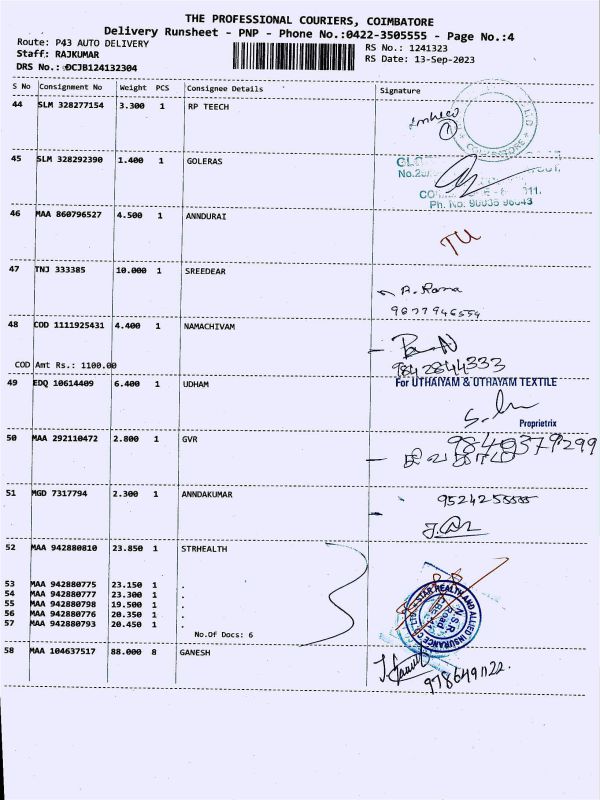 THE PROFESSIONAL COURIERS, COIMBATORE
Delivery Runsheet - PNP - Phone No.:0422-3505555 - Page No.:4
Route: P43 AUTO DELIVERY
RS No.: 1241323
Staff: RAJKUMAR
RS Date: 13-Sep-2023
DRS No.: DCJB124132304
S No Consignment No Weight PCS Consignee Details Signature
44 SLM 328277154 3.300 1 RP TEECH
COIMBATORE
45 SLM 328292390 1.400 1 GOLERAS
46 MAA 860796527 4.500 1 ANNDURAI
TU
47 TNJ 333385 10.000 1 SREEDEAR
A. Rama
9877946554
48 COD 1111925431 4.400 1 NAMACHIVAM
9842844333
COD Amt Rs.: 1100.00
For UTHAIYAM & UTHAYAM TEXTILE
49 EDQ 10614409 6.400 1 UDHAM
Proprietrix
50 MAA 292110472 2.800 1 GVR
9840379299
51 MGD 7317794 2.300 1 ANNDAKUMAR
9524255555
52 MAA 942880810 23.850 1 STRHEALTH
53 MAA 942880775 23.150 1 .
54 MAA 942880777 23.300 1 .
55 MAA 942880798 19.500 1 .
56 MAA 942880776 20.350 1 .
57 MAA 942880793 20.450 1 .
No.Of Docs: 6
STAR HEALTH AND ALLIED INSURANCE CO. LTD
N.S.R
Road
58 MAA 104637517 88.000 8 GANESH
9786491122.